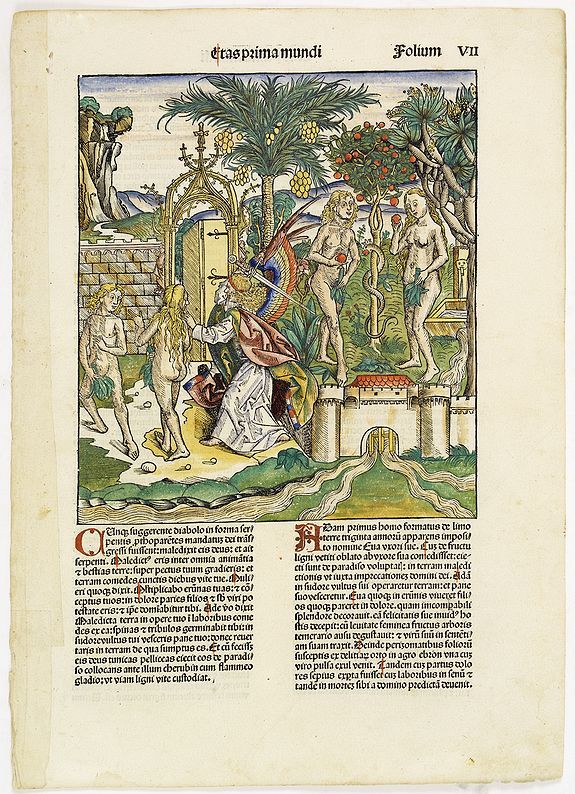 Etas prima mundi Folium VII
CUnq̃ suggerente diabolo in forma ser
pentis prothoparētes mandatuȝ dei trāſ
gressi fuissent: maledixit eis deus: et ait
serpenti. Maledict⁹ eris inter omnia animātia
⁊ bestias terre: super pectus tuum gradieris: et
terram comedes cunctis diebus vite tue. Muli
eri quoqȝ dixit. Multiplicabo erūnas tuas: ⁊ cō
ceptus tuos: in dolore paries filios ⁊ sb̄ viri po
testate eris: ⁊ ip̄e dominabitur tibi. Ade v̄o dixit
Maledicta terra in opere tuo ī laboribus come
des ex ea: spinas ⁊ tribulos germinabit tibi: in
sudore vultus tui vesceris pane tuo: donec reuer
taris in terram de qua sumptus es. Et cū fecisȝ
eis deus tunicas pelliceas eiecit eos de paradi
so collocans ante illum cherubin cum flammeo
gladio: vt viam ligni vite custodiat.
ADam primus homo formatus de limo
terre triginta annorū apparens imposi
to nomine Eua vxori sue. Cuȝ de fructu
ligni vetiti oblato ab vxore sua comedisset: eie
cti sunt de paradiso voluptatȝ: in terram maledi
ctionis vt iuxta imprecationeȝ domini dei. Adā
in sudore vultus sui operaretur terram: ⁊ pane
suo vesceretur. Eua quoqȝ in erūnis viueret fili
os quoqȝ pareret in dolore. quam incompabili
splendore decorauit. eā felicitatis sue inuid⁹ ho
stis decepit: cū leuitate feminea fructus arboris
temerario ausu degustauit: ⁊ virū suū in sentēti
am suam traxit. Deinde perizomatibus folioruȝ
susceptis ex delitiaȝ orto in agro ebron vna cuȝ
viro pulsa exul venit. Tandem cuȝ partus dolo
res sepius exp̄ta fuisset cuȝ laboribus in seniū ⁊
tandē in mortē sibi a domino predictā deuenit.